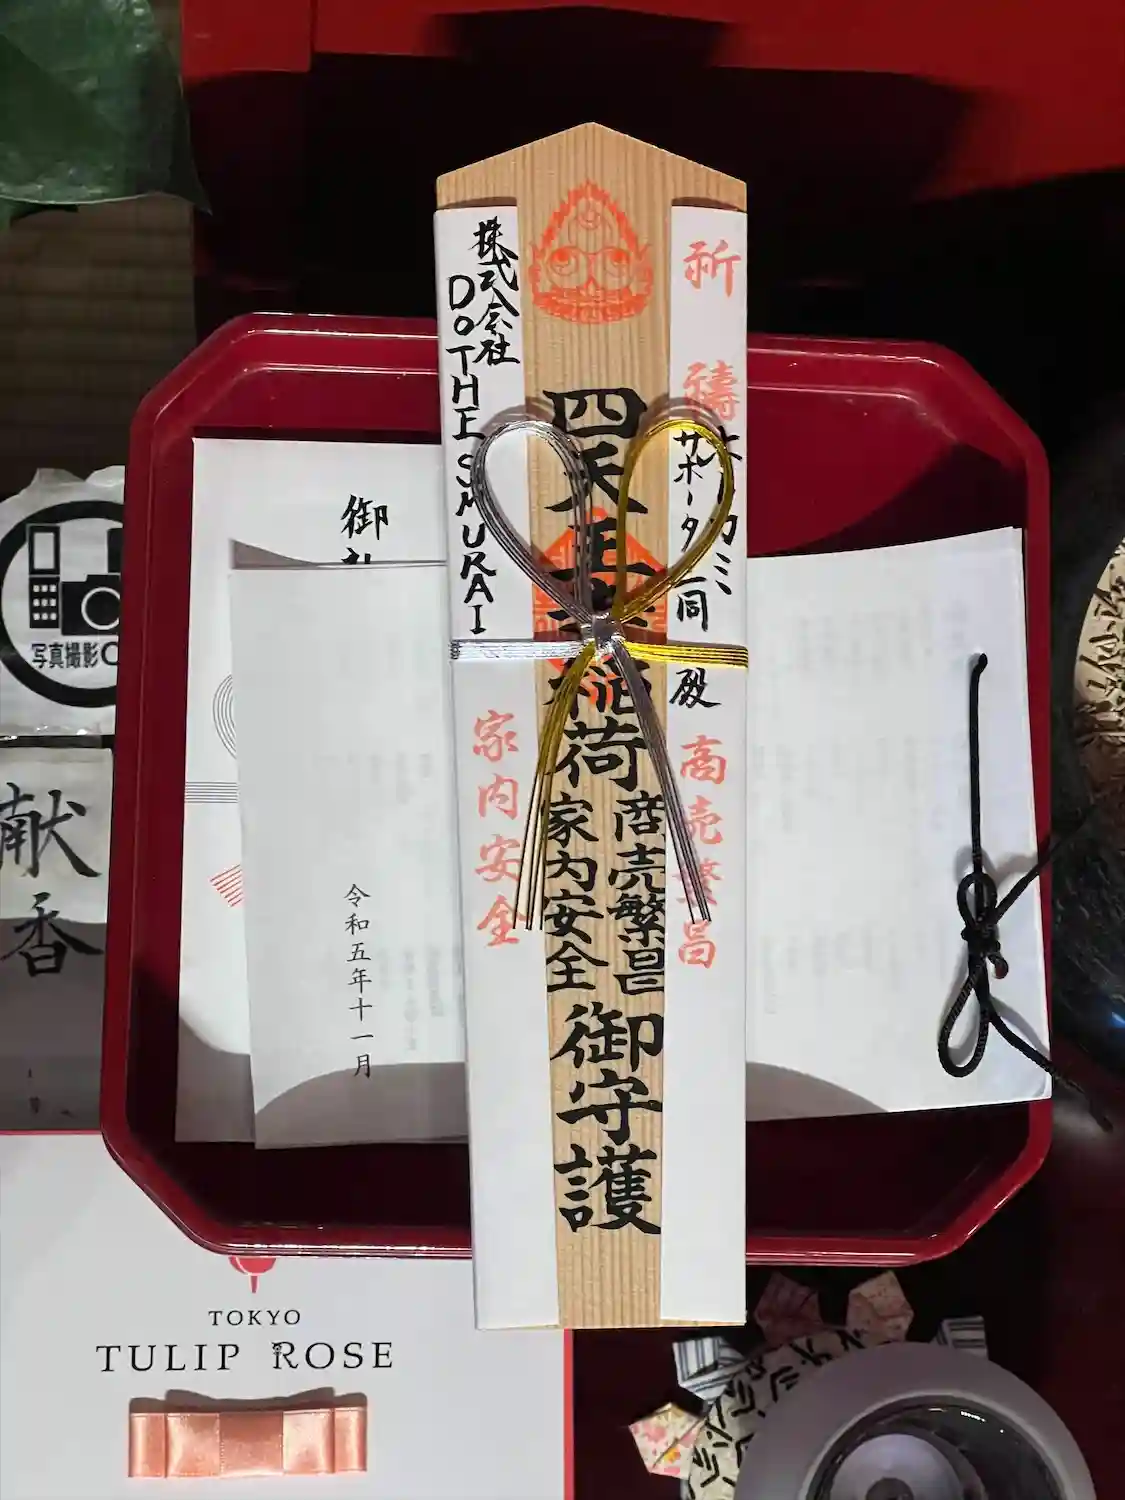 祈
祷
サポーター同
殿
商売繁昌
四天王
稲荷
商売繁昌
家内安全
御守護
株式会社
DOTHESAMURAI
家内安全
御
令和五年十一月
写真撮影
献香
TOKYO
TULIP ROSE